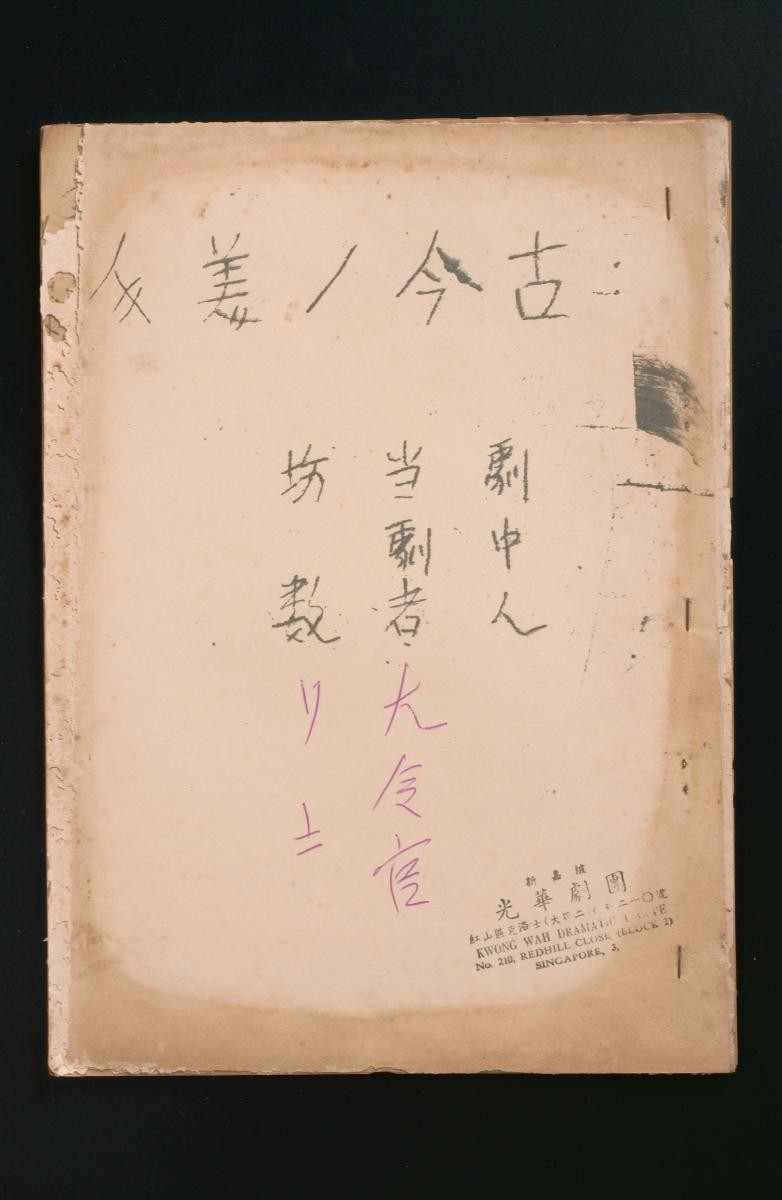 古今ノ美
劇中人
当劇者大令官
坊数
新嘉坡
光華劇團
紅山區克洛士(大牌二)門牌二一〇號
KWONG WAH DRAMATIC
No. 210, REDHILL CLOSE (BLOCK 2)
SINGAPORE, 3,